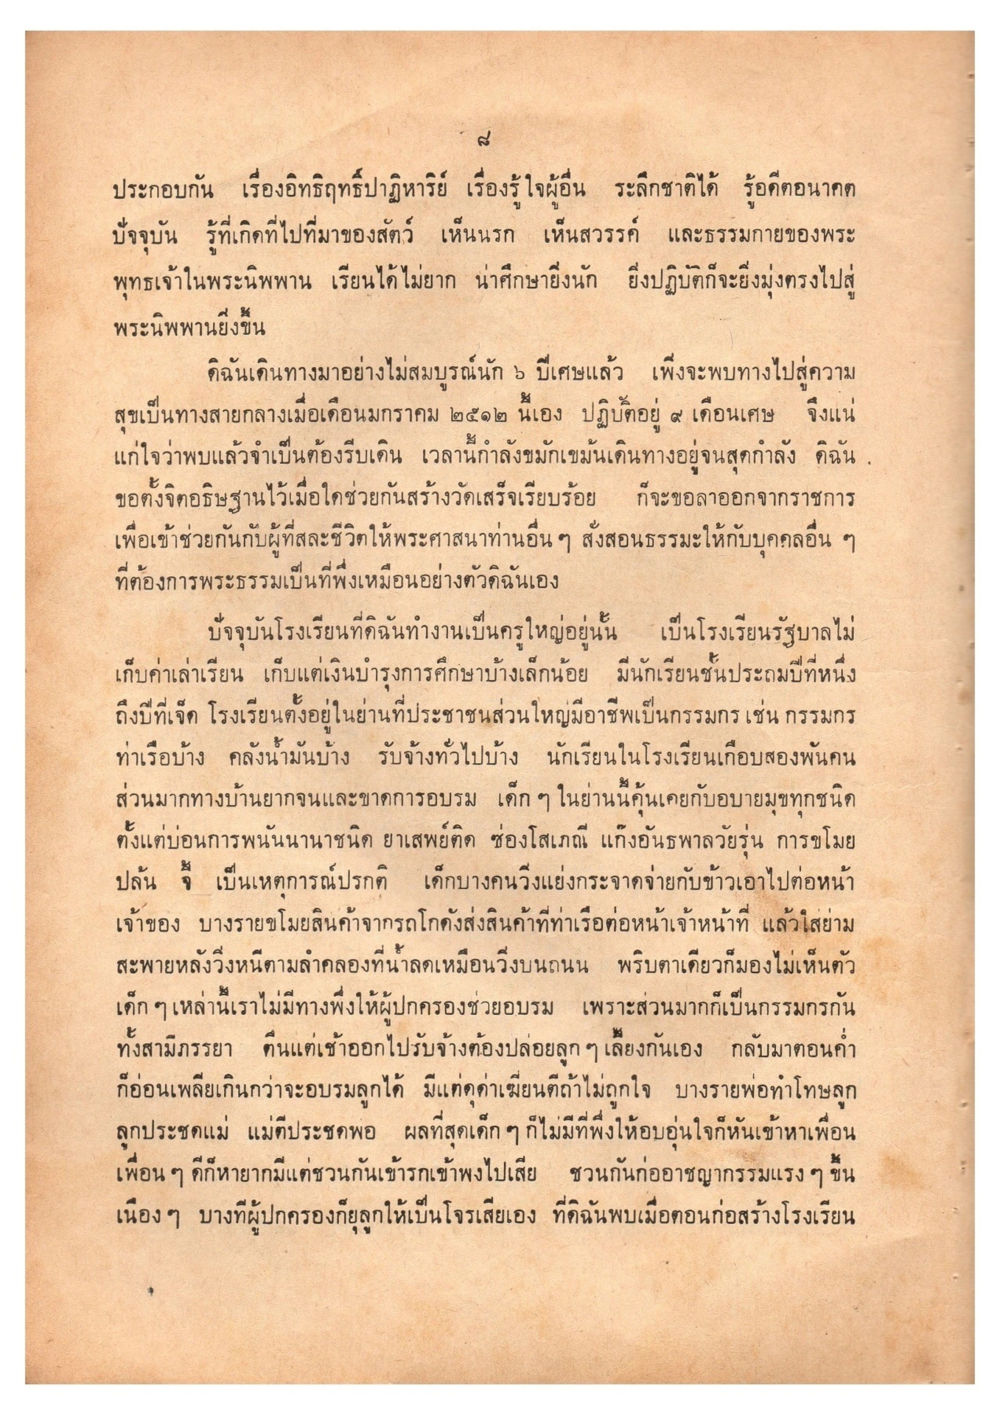 ๘
ประกอบกัน เรื่องอิทธิฤทธิ์ปาฏิหาริย์ เรื่องรู้ใจผู้อื่น ระลึกชาติได้ รู้อดีตอนาคต
ปัจจุบัน รู้ที่เกิดที่ไปที่มาของสัตว์ เห็นนรก เห็นสวรรค์ และธรรมกายของพระ
พุทธเจ้าในพระนิพพาน เรียนได้ไม่ยาก น่าศึกษายิ่งนัก ยิ่งปฏิบัติก็จะยิ่งมุ่งตรงไปสู่
พระนิพพานยิ่งขึ้น
ดิฉันเดินทางมาอย่างไม่สมบูรณ์นัก ๖ ปีเศษแล้ว เพิ่งจะพบทางไปสู่ความ
สุขเป็นทางสายกลางเมื่อเดือนมกราคม ๒๕๑๒ นี้เอง ปฏิบัติอยู่ ๙ เดือนเศษ จึงแน่
แก่ใจว่าพบแล้วจำเป็นต้องรีบเดิน เวลานี้กำลังขมักเขม้นเดินทางอยู่จนสุดกำลัง ดิฉัน
ขอตั้งจิตอธิษฐานไว้เมื่อใดช่วยกันสร้างวัดเสร็จเรียบร้อย ก็จะขอลาออกจากราชการ
เพื่อเข้าช่วยกันกับผู้ที่สละชีวิตให้พระศาสนาท่านอื่น ๆ สั่งสอนธรรมะให้กับบุคคลอื่น ๆ
ที่ต้องการพระธรรมเป็นที่พึ่งเหมือนอย่างตัวดิฉันเอง
ปัจจุบันโรงเรียนที่ดิฉันทำงานเป็นครูใหญ่อยู่นั้น เป็นโรงเรียนรัฐบาลไม่
เก็บค่าเล่าเรียน เก็บแต่เงินบำรุงการศึกษาบ้างเล็กน้อย มีนักเรียนชั้นประถมปีที่หนึ่ง
ถึงปีที่เจ็ด โรงเรียนตั้งอยู่ในย่านที่ประชาชนส่วนใหญ่มีอาชีพเป็นกรรมกร เช่น กรรมกร
ท่าเรือบ้าง คลังน้ำมันบ้าง รับจ้างทั่วไปบ้าง นักเรียนในโรงเรียนเกือบสองพันคน
ส่วนมากทางบ้านยากจนและขาดการอบรม เด็ก ๆ ในย่านนี้คุ้นเคยกับอบายมุขทุกชนิด
ตั้งแต่บ่อนการพนันนานาชนิด ยาเสพย์ติด ซ่องโสเภณี แก๊งอันธพาลวัยรุ่น การขโมย
ปล้น จี้ เป็นเหตุการณ์ปรกติ เด็กบางคนวิ่งแย่งกระจาดจ่ายกับข้าวเอาไปต่อหน้า
เจ้าของ บางรายขโมยสินค้าจากรถโกดังส่งสินค้าที่ท่าเรือต่อหน้าเจ้าหน้าที่ แล้วใส่ย่าม
สะพายหลังวิ่งหนีตามลำคลองที่น้ำลดเหมือนวิ่งบนถนน พริบตาเดียวก็มองไม่เห็นตัว
เด็ก ๆ เหล่านี้เราไม่มีทางพึ่งให้ผู้ปกครองช่วยอบรม เพราะส่วนมากก็เป็นกรรมกรกัน
ทั้งสามีภรรยา ตื่นแต่เช้าออกไปรับจ้างต้องปล่อยลูก ๆ เลี้ยงกันเอง กลับมาตอนค่ำ
ก็อ่อนเพลียเกินกว่าจะอบรมลูกได้ มีแต่ดุด่าเฆี่ยนตีถ้าไม่ถูกใจ บางรายพ่อทำโทษลูก
ลูกประชดแม่ แม่ตีประชดพ่อ ผลที่สุดเด็ก ๆ ก็ไม่มีที่พึ่งให้อบอุ่นใจก็หันเข้าหาเพื่อน
เพื่อน ๆ ดีก็หายากมีแต่ชวนกันเข้ารกเข้าพงไปเสีย ชวนกันก่ออาชญากรรมแรง ๆ ขึ้น
เนือง ๆ บางทีผู้ปกครองก็ยุลูกให้เป็นโจรเสียเอง ที่ดิฉันพบเมื่อตอนก่อสร้างโรงเรียน